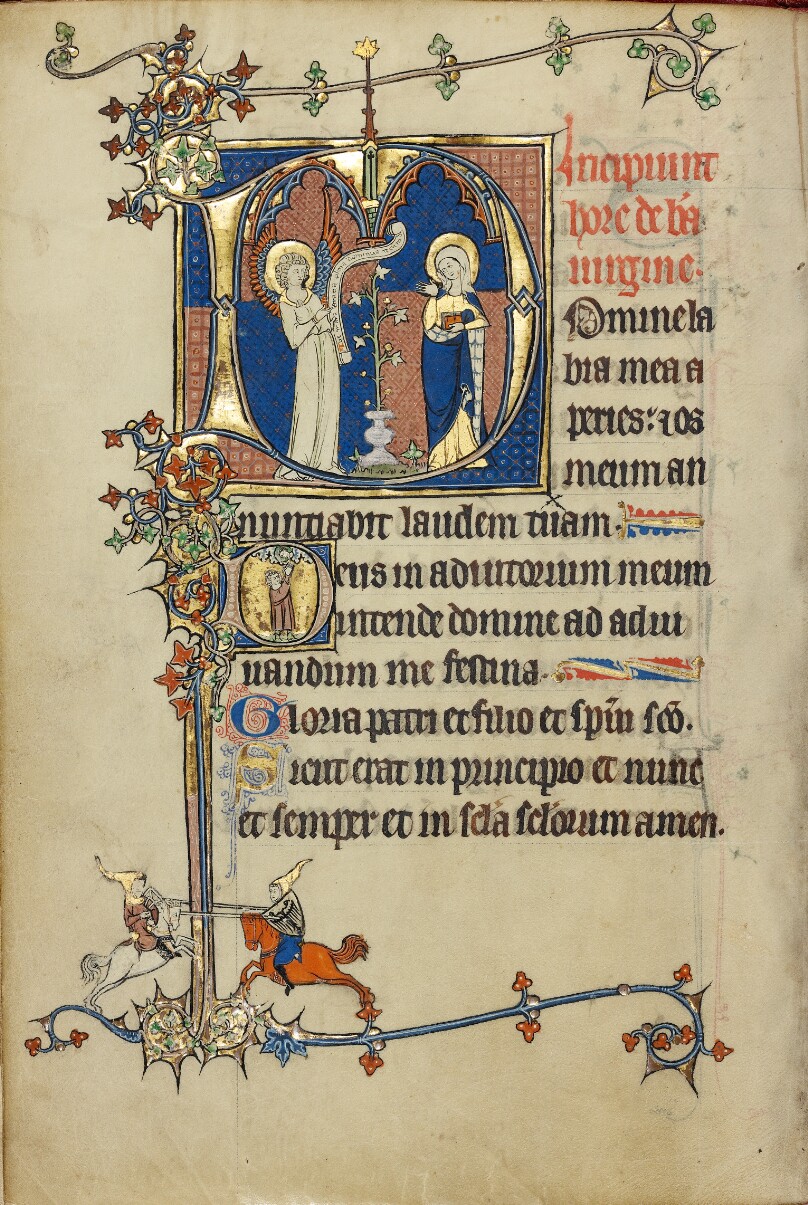 Incipiunt
hore de bā
uirgine.
Domine la
bia mea a
peries: ⁊ os
meum an
nuntiabit laudem tuam.
Deus in adiutorium meum
intende domine ad adiu
uandum me festina.
Gloria patri et filio et spūi scō.
Sicut erat in principio et nunc
et semper et in sclā sclōrum amen.